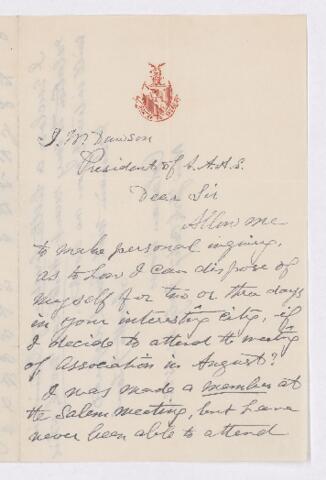 J. W. Dawson
President of A.A.A.S.
Dear Sir
Allow me
to make personal inquiry,
as to how I can dispose of
myself for two or three days
in your interesting city, if
I decide to attend the meeting
of association in August?
I was made a member at
the Salem meeting, but have
never been able to attend